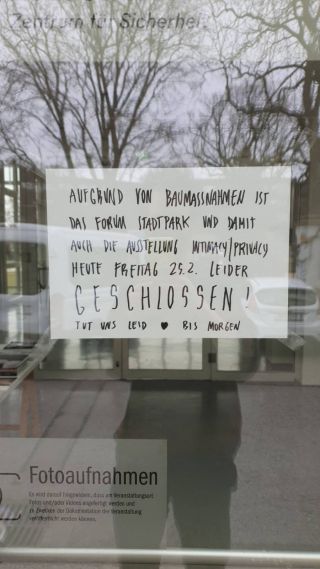 Zentrum für Sicherheit
AUFGRUND VON BAUMASSNAHMEN IST
DAS FORUM STADTPARK UND DAMIT
AUCH DIE AUSSTELLUNG INTIMACY/PRIVACY
HEUTE FREITAG 25.2. LEIDER
GESCHLOSSEN!
TUT UNS LEID ♥ BIS MORGEN
Fotoaufnahmen
Es wird darauf hingewiesen, dass am Veranstaltungsort
Fotos und/oder Videos angefertigt werden und
zu Zwecken der Dokumentation der Veranstaltung
veröffentlicht werden können.